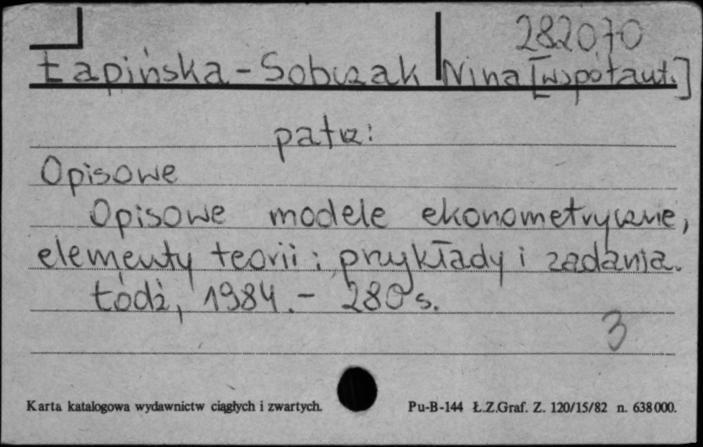 282070
Łapińska-Sobczak Nina [współaut.]
patrz:
Opisowe
Opisowe modele ekonometryczne,
elementy teorii; przykłady i zadania.
Łódź, 1984.- 280 s.
3
Karta katalogowa wydawnictw ciągłych i zwartych. Pu-B-144 Ł.Z.Graf. Z. 120/15/82 n. 638000.